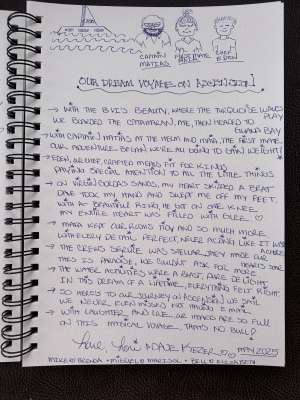 CAPTAIN MATIAS
FIRST MATE
CHEF EDEN
OUR DREAM VOYAGES ON ASCENSION!
→ WITH THE BVI'S BEAUTY, WHERE THE TURQUOISE WAVES PLAY
WE BOARDED THE CATAMARAN, THEN HEADED TO
BAY
→ WITH CAPTAIN MATIAS AT THE HELM AND MARA, THE FIRST MATE
OUR ADVENTURE BEGAN, WE'RE ALL GOING TO GAIN WEIGHT!
→ EDEN, OUR CHEF, CRAFTED MEALS FIT FOR KINGS
PAYING SPECIAL ATTENTION TO ALL THE LITTLE THINGS
→ ON VIRGIN GORDA'S SANDS, MY HEART SKIPPED A BEAT
DAVE TOOK MY HAND AND SWEPT ME OFF MY FEET.
WITH A BEAUTIFUL RING, HE GOT ON ONE KNEE
MY ENTIRE HEART WAS FILLED WITH GLEE
→ MARA KEPT OUR ROOMS TIDY AND SO MUCH MORE
WITH EVERY DETAIL PERFECT, NEVER ACTING LIKE IT WAS A CHORE
→ THE CREW'S SERVICE WAS STELLAR, THEY MADE OUR HEARTS SOAR
THIS IS PARADISE, WE COULDN'T ASK FOR MORE
→ THE WATER ACTIVITIES WERE A BLAST, PURE DELIGHT
IN THIS DREAM OF A LIFETIME, EVERYTHING FELT RIGHT
→ SO HERE'S TO OUR JOURNEY ON ASCENSION WE SAIL
WE NEVER EVEN MISSED NOT HAVING E-MAIL
→ WITH LAUGHTER AND LOVE, OUR HEARTS ARE SO FULL
ON THIS MAGICAL VOYAGE, THAT'S NO BULL!
Love, Lori & DAVE
MAY 2025
MIKE & BRENDA • MIGUEL & MARISOL • BELL & ELIZABETH